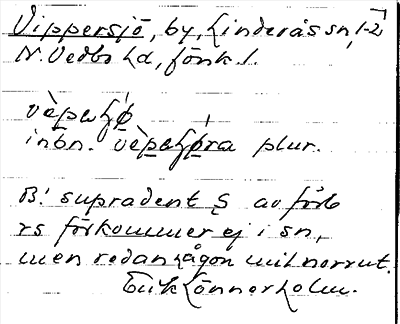 Vippersjö, by, Linderås sn, 1-2
N. Vedbo hd, Jönk. l.
inbn. plur.
B! supradent ş av förb
rs förkommer ej i sn,
men redan någon mil norrut.
Erik Lönnerholm.